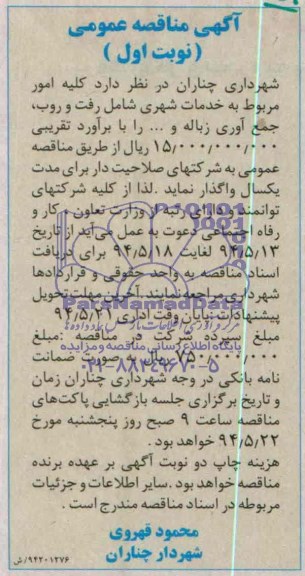 آگهی مناقصه عمومی
(نوبت اول)
شهرداری چناران در نظر دارد کلیه امور
مربوط به خدمات شهری شامل رفت و روب،
جمع آوری زباله و ... را با برآورد تقریبی
۱۵/۰۰۰/۰۰۰/۰۰۰ ریال از طریق مناقصه
عمومی به شرکتهای صلاحیت دار برای مدت
یکسال واگذار نماید .لذا از کلیه شرکتهای
توانمند و دارای رتبه از وزارت تعاون ، کار و
رفاه اجتماعی دعوت به عمل می آید از تاریخ
۹۴/۵/۱۳ لغایت ۹۴/۵/۱۸ برای دریافت
اسناد مناقصه به واحد حقوقی و قراردادها
شهرداری مراجعه نمایند .آخرین مهلت تحویل
پیشنهادات :پایان وقت اداری ۹۴/۵/۲۱
مبلغ سپرده شرکت در مناقصه :مبلغ
۷۵۰/۰۰۰/۰۰۰ ریال به صورت ضمانت
نامه بانکی در وجه شهرداری چناران زمان
و تاریخ برگزاری جلسه بازگشایی پاکت‌های
مناقصه ساعت ۹ صبح روز پنجشنبه مورخ
۹۴/۵/۲۲ خواهد بود .
هزینه چاپ دو نوبت آگهی بر عهده برنده
مناقصه خواهد بود .سایر اطلاعات و جزئیات
مربوطه در اسناد مناقصه مندرج است .
محمود قهروی
شهردار چناران
۹۴۲۰۱۲۷۶/ش
ParsNamadData
پایگاه اطلاع رسانی مناقصه و مزایده
۰۲۱-۸۸۳۴۹۶۷۰-۵